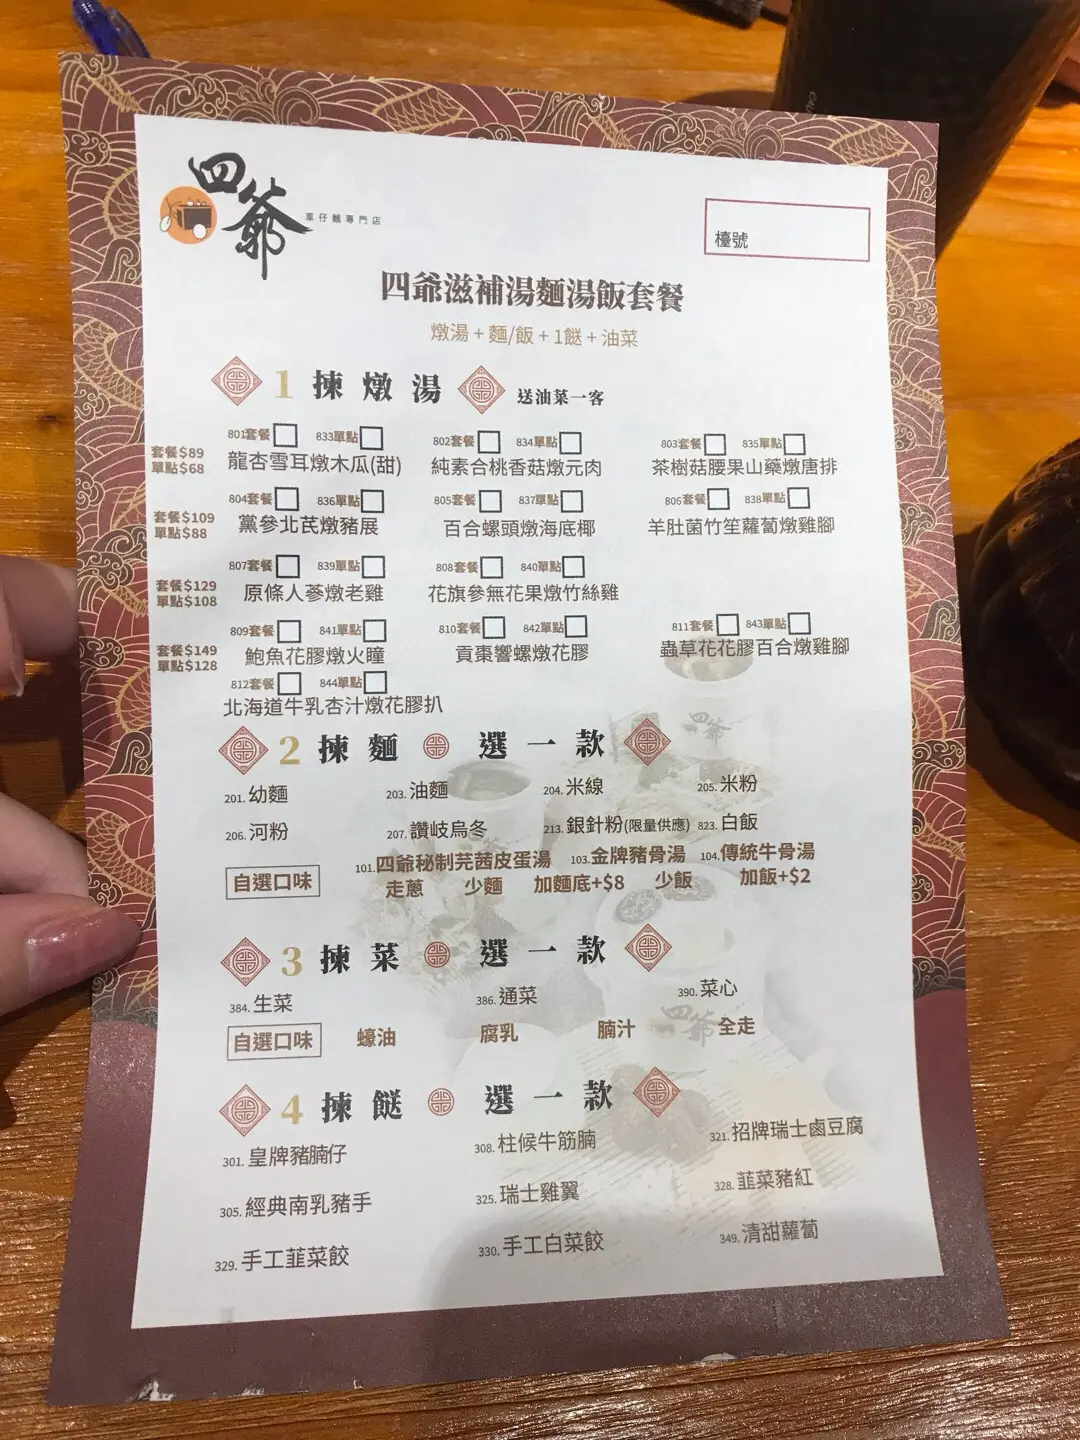 四爺
車仔麵專門店
檯號
四爺滋補湯麵湯飯套餐
燉湯 + 麵/飯 + 1餸 + 油菜
1 揀燉湯 送油菜一客
套餐$89
單點$68
801套餐 833單點 802套餐 834單點 803套餐 835單點
龍杏雪耳燉木瓜(甜) 純素合桃香菇燉元肉 茶樹菇腰果山藥燉唐排
套餐$109
單點$88
804套餐 836單點 805套餐 837單點 806套餐 838單點
黨參北芪燉豬展 百合螺頭燉海底椰 羊肚菌竹笙蘿蔔燉雞腳
套餐$129
單點$108
807套餐 839單點 808套餐 840單點
原條人蔘燉老雞 花旗參無花果燉竹絲雞
套餐$149
單點$128
809套餐 841單點 810套餐 842單點 811套餐 843單點
鮑魚花膠燉火瞳 貢棗響螺燉花膠 蟲草花花膠百合燉雞腳
812套餐 844單點
北海道牛乳杏汁燉花膠扒
2 揀麵 選一款
201. 幼麵 203. 油麵 204. 米線 205. 米粉
206. 河粉 207. 讚岐烏冬 213. 銀針粉(限量供應) 823. 白飯
自選口味 101. 四爺秘制芫茜皮蛋湯 103. 金牌豬骨湯 104. 傳統牛骨湯
走蔥 少麵 加麵底+$8 少飯 加飯+$2
3 揀菜 選一款
384. 生菜 386. 通菜 390. 菜心
自選口味 蠔油 腐乳 腩汁 全走
4 揀餸 選一款
301. 皇牌豬腩仔 308. 柱候牛筋腩 321. 招牌瑞士鹵豆腐
305. 經典南乳豬手 325. 瑞士雞翼 328. 韮菜豬紅
329. 手工韮菜餃 330. 手工白菜餃 349. 清甜蘿蔔